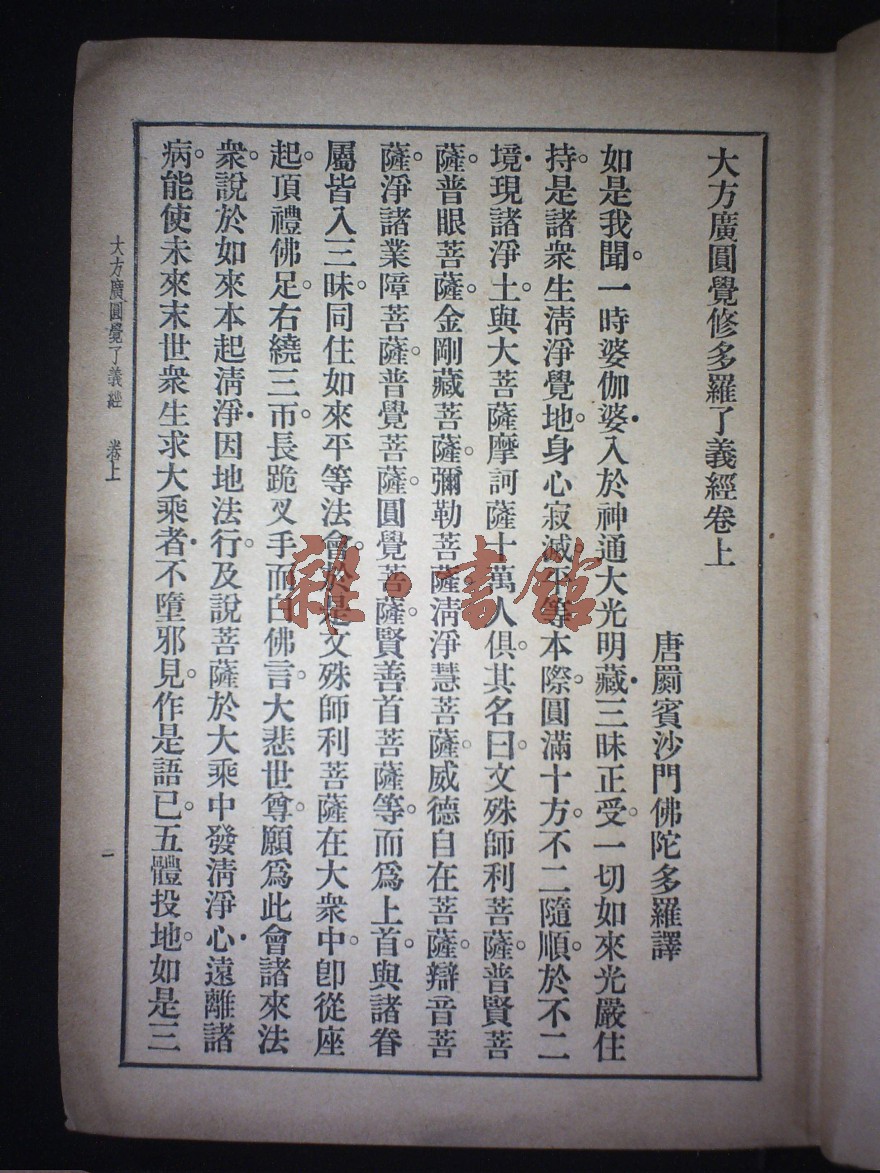 大方廣圓覺修多羅了義經卷上
唐罽賓沙門佛陀多羅譯
如是我聞。一時婆伽婆.入於神通大光明藏.三昧正受。一切如來光嚴住
持。是諸衆生淸淨覺地。身心寂滅。平等本際。圓滿十方。不二隨順。於不二
境.現諸淨土。與大菩薩摩訶薩十萬人俱。其名曰。文殊師利菩薩。普賢菩
薩。普眼菩薩。金剛藏菩薩。彌勒菩薩。淸淨慧菩薩。威德自在菩薩。辯音菩
薩。淨諸業障菩薩。普覺菩薩。圓覺菩薩。賢善首菩薩等。而爲上首。與諸眷
屬皆入三昧。同住如來平等法會。於是文殊師利菩薩在大衆中。卽從座
起。頂禮佛足。右繞三帀。長跪叉手而白佛言。大悲世尊。願爲此會諸來法
衆。說於如來本起淸淨.因地法行。及說菩薩於大乘中發淸淨心.遠離諸
病。能使未來末世衆生求大乘者.不墮邪見。作是語已。五體投地。如是三
大方廣圓覺了義經 卷上
一
雜·書館